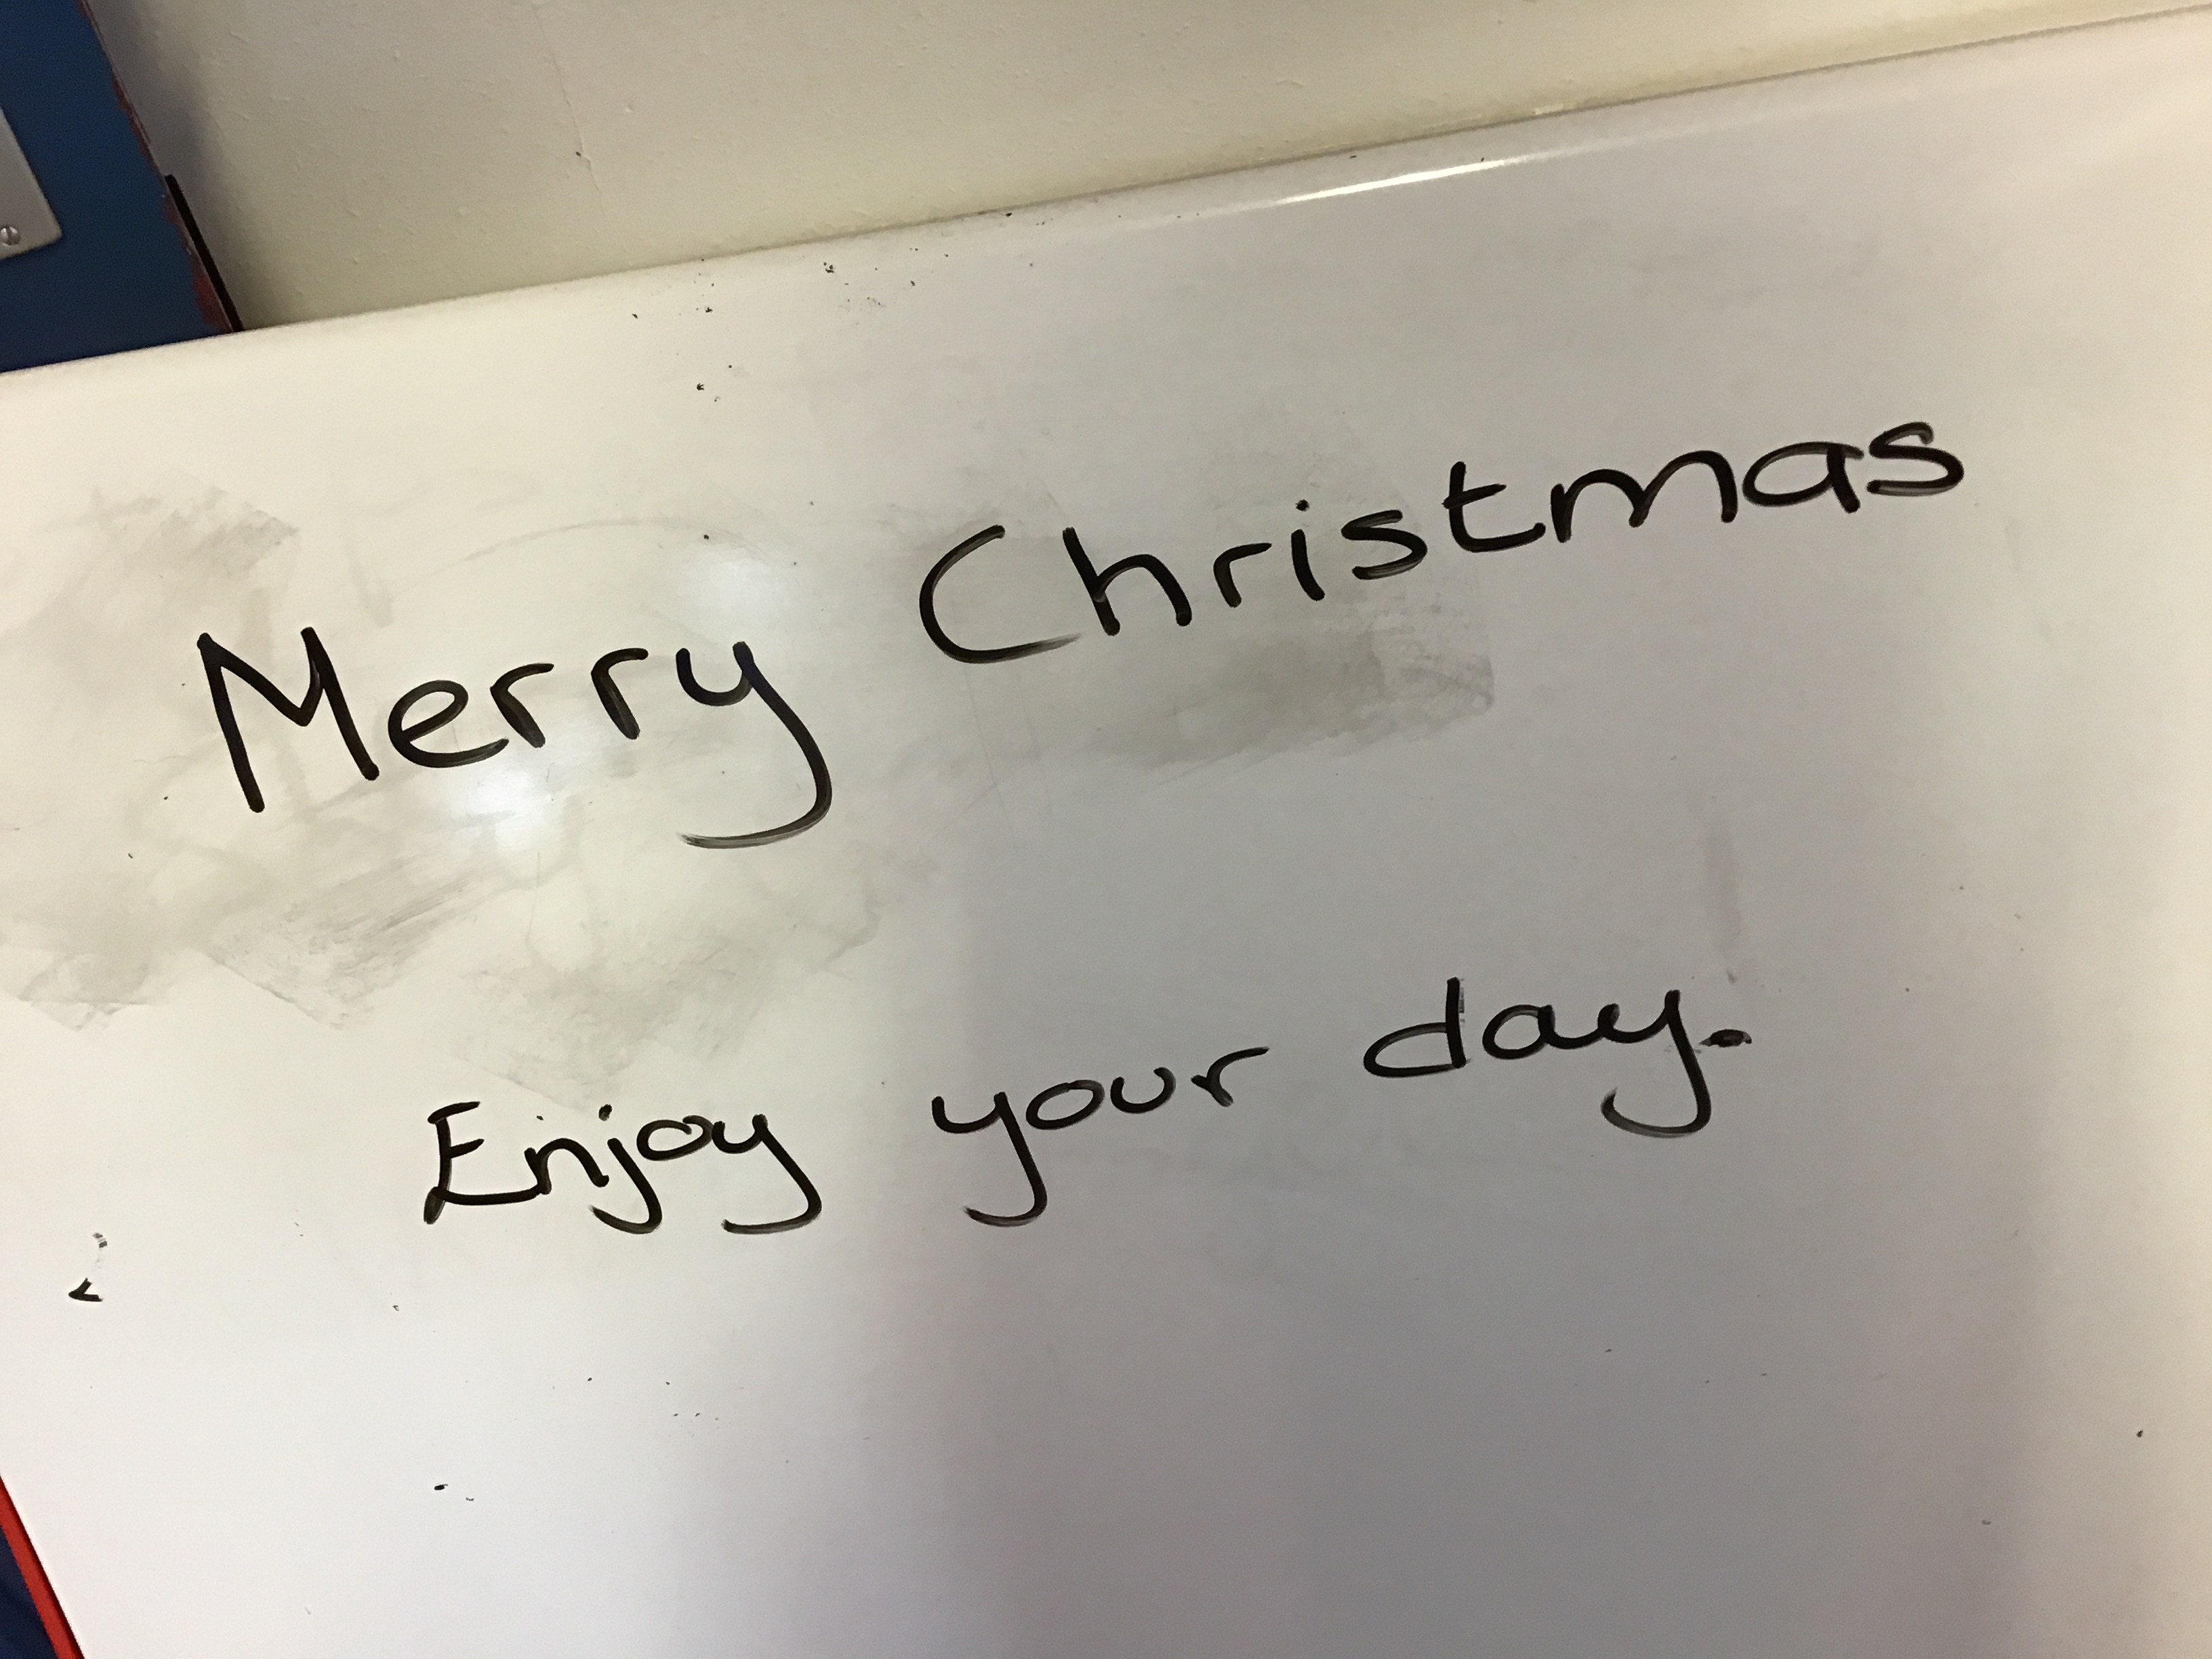 Merry Christmas
Enjoy your day.